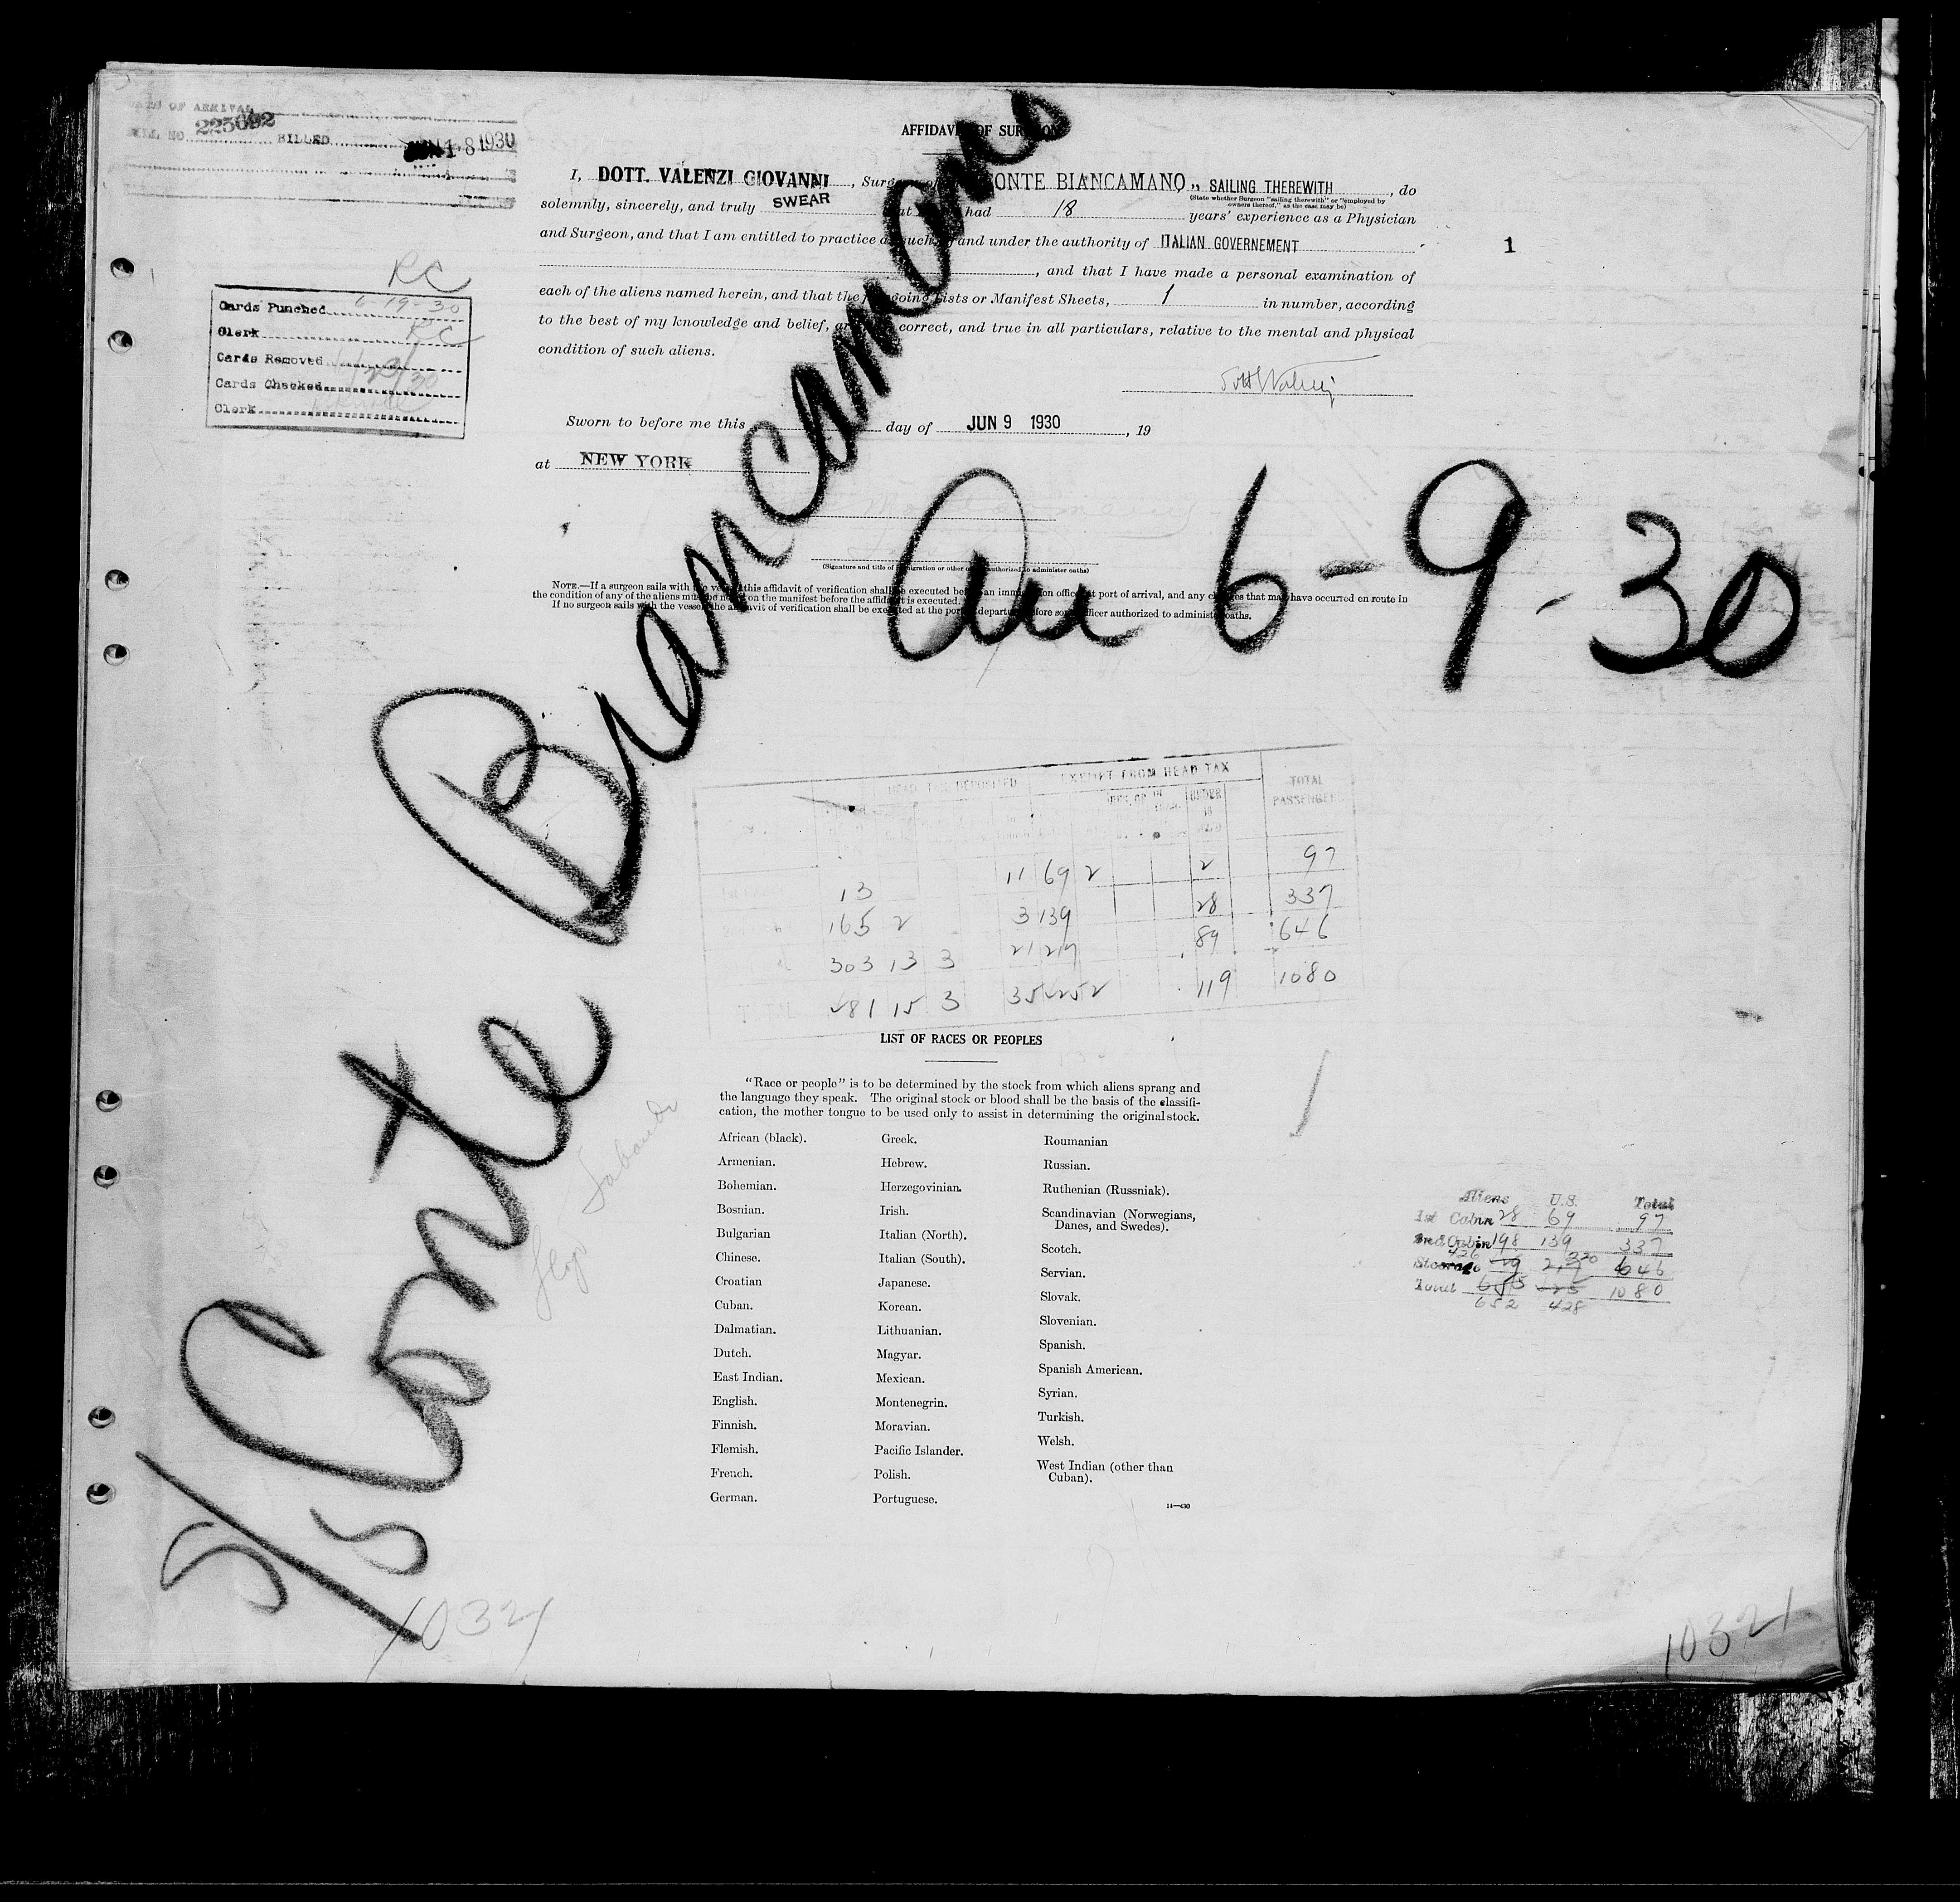 DATE OF ARRIVAL
BILL NO. 225092 BILLED JUN 18 1930
AFFIDAVIT OF SURGEON
I, DOTT. VALENZI GIOVANNI, Surgeon of CONTE BIANCAMANO„ SAILING THEREWITH, do
(State whether Surgeon "sailing therewith" or "employed by
owners thereof," as the case may be)
solemnly, sincerely, and truly SWEAR that I have had 18 years' experience as a Physician
and Surgeon, and that I am entitled to practice as such by and under the authority of ITALIAN GOVERNEMENT
1
, and that I have made a personal examination of
each of the aliens named herein, and that the foregoing Lists or Manifest Sheets, 1 in number, according
to the best of my knowledge and belief, are full, correct, and true in all particulars, relative to the mental and physical
condition of such aliens.
RC
Cards Punched 6-19-30
Clerk RC
Cards Removed
Cards Checked
Clerk
Sworn to before me this day of JUN 9 1930, 19
at NEW YORK
(Signature and title of immigration or other officer authorized to administer oaths)
NOTE.—If a surgeon sails with the vessel, this affidavit of verification shall be executed before an immigration officer at port of arrival, and any changes that may have occurred on route in
the condition of any of the aliens must be noted on the manifest before the affidavit is executed.
If no surgeon sails with the vessel, the affidavit of verification shall be executed at the port of departure before some officer authorized to administer oaths.
S/S Conte Biancamano
6-9-30
HEAD TAX DEPOSITED EXEMPT FROM HEAD TAX TOTAL
PASSENGERS
UNDER
16
13 11 69 2 2 97
165 2 3 139 28 337
303 13 3 21 217 89 646
481 15 3 35 425 2 119 1080
LIST OF RACES OR PEOPLES
"Race or people" is to be determined by the stock from which aliens sprang and
the language they speak. The original stock or blood shall be the basis of the classifi-
cation, the mother tongue to be used only to assist in determining the original stock.
African (black).
Armenian.
Bohemian.
Bosnian.
Bulgarian
Chinese.
Croatian
Cuban.
Dalmatian.
Dutch.
East Indian.
English.
Finnish.
Flemish.
French.
German.
Greek.
Hebrew.
Herzegovinian.
Irish.
Italian (North).
Italian (South).
Japanese.
Korean.
Lithuanian.
Magyar.
Mexican.
Montenegrin.
Moravian.
Pacific Islander.
Polish.
Portuguese.
Roumanian
Russian.
Ruthenian (Russniak).
Scandinavian (Norwegians,
Danes, and Swedes).
Scotch.
Servian.
Slovak.
Slovenian.
Spanish.
Spanish American.
Syrian.
Turkish.
Welsh.
West Indian (other than
Cuban).
14—430
Aliens U.S. Total
1st Cabin 28 69 97
2nd Cabin 198 139 337
Steerage 426 220 646
Total 1080
652 428
10321
10321